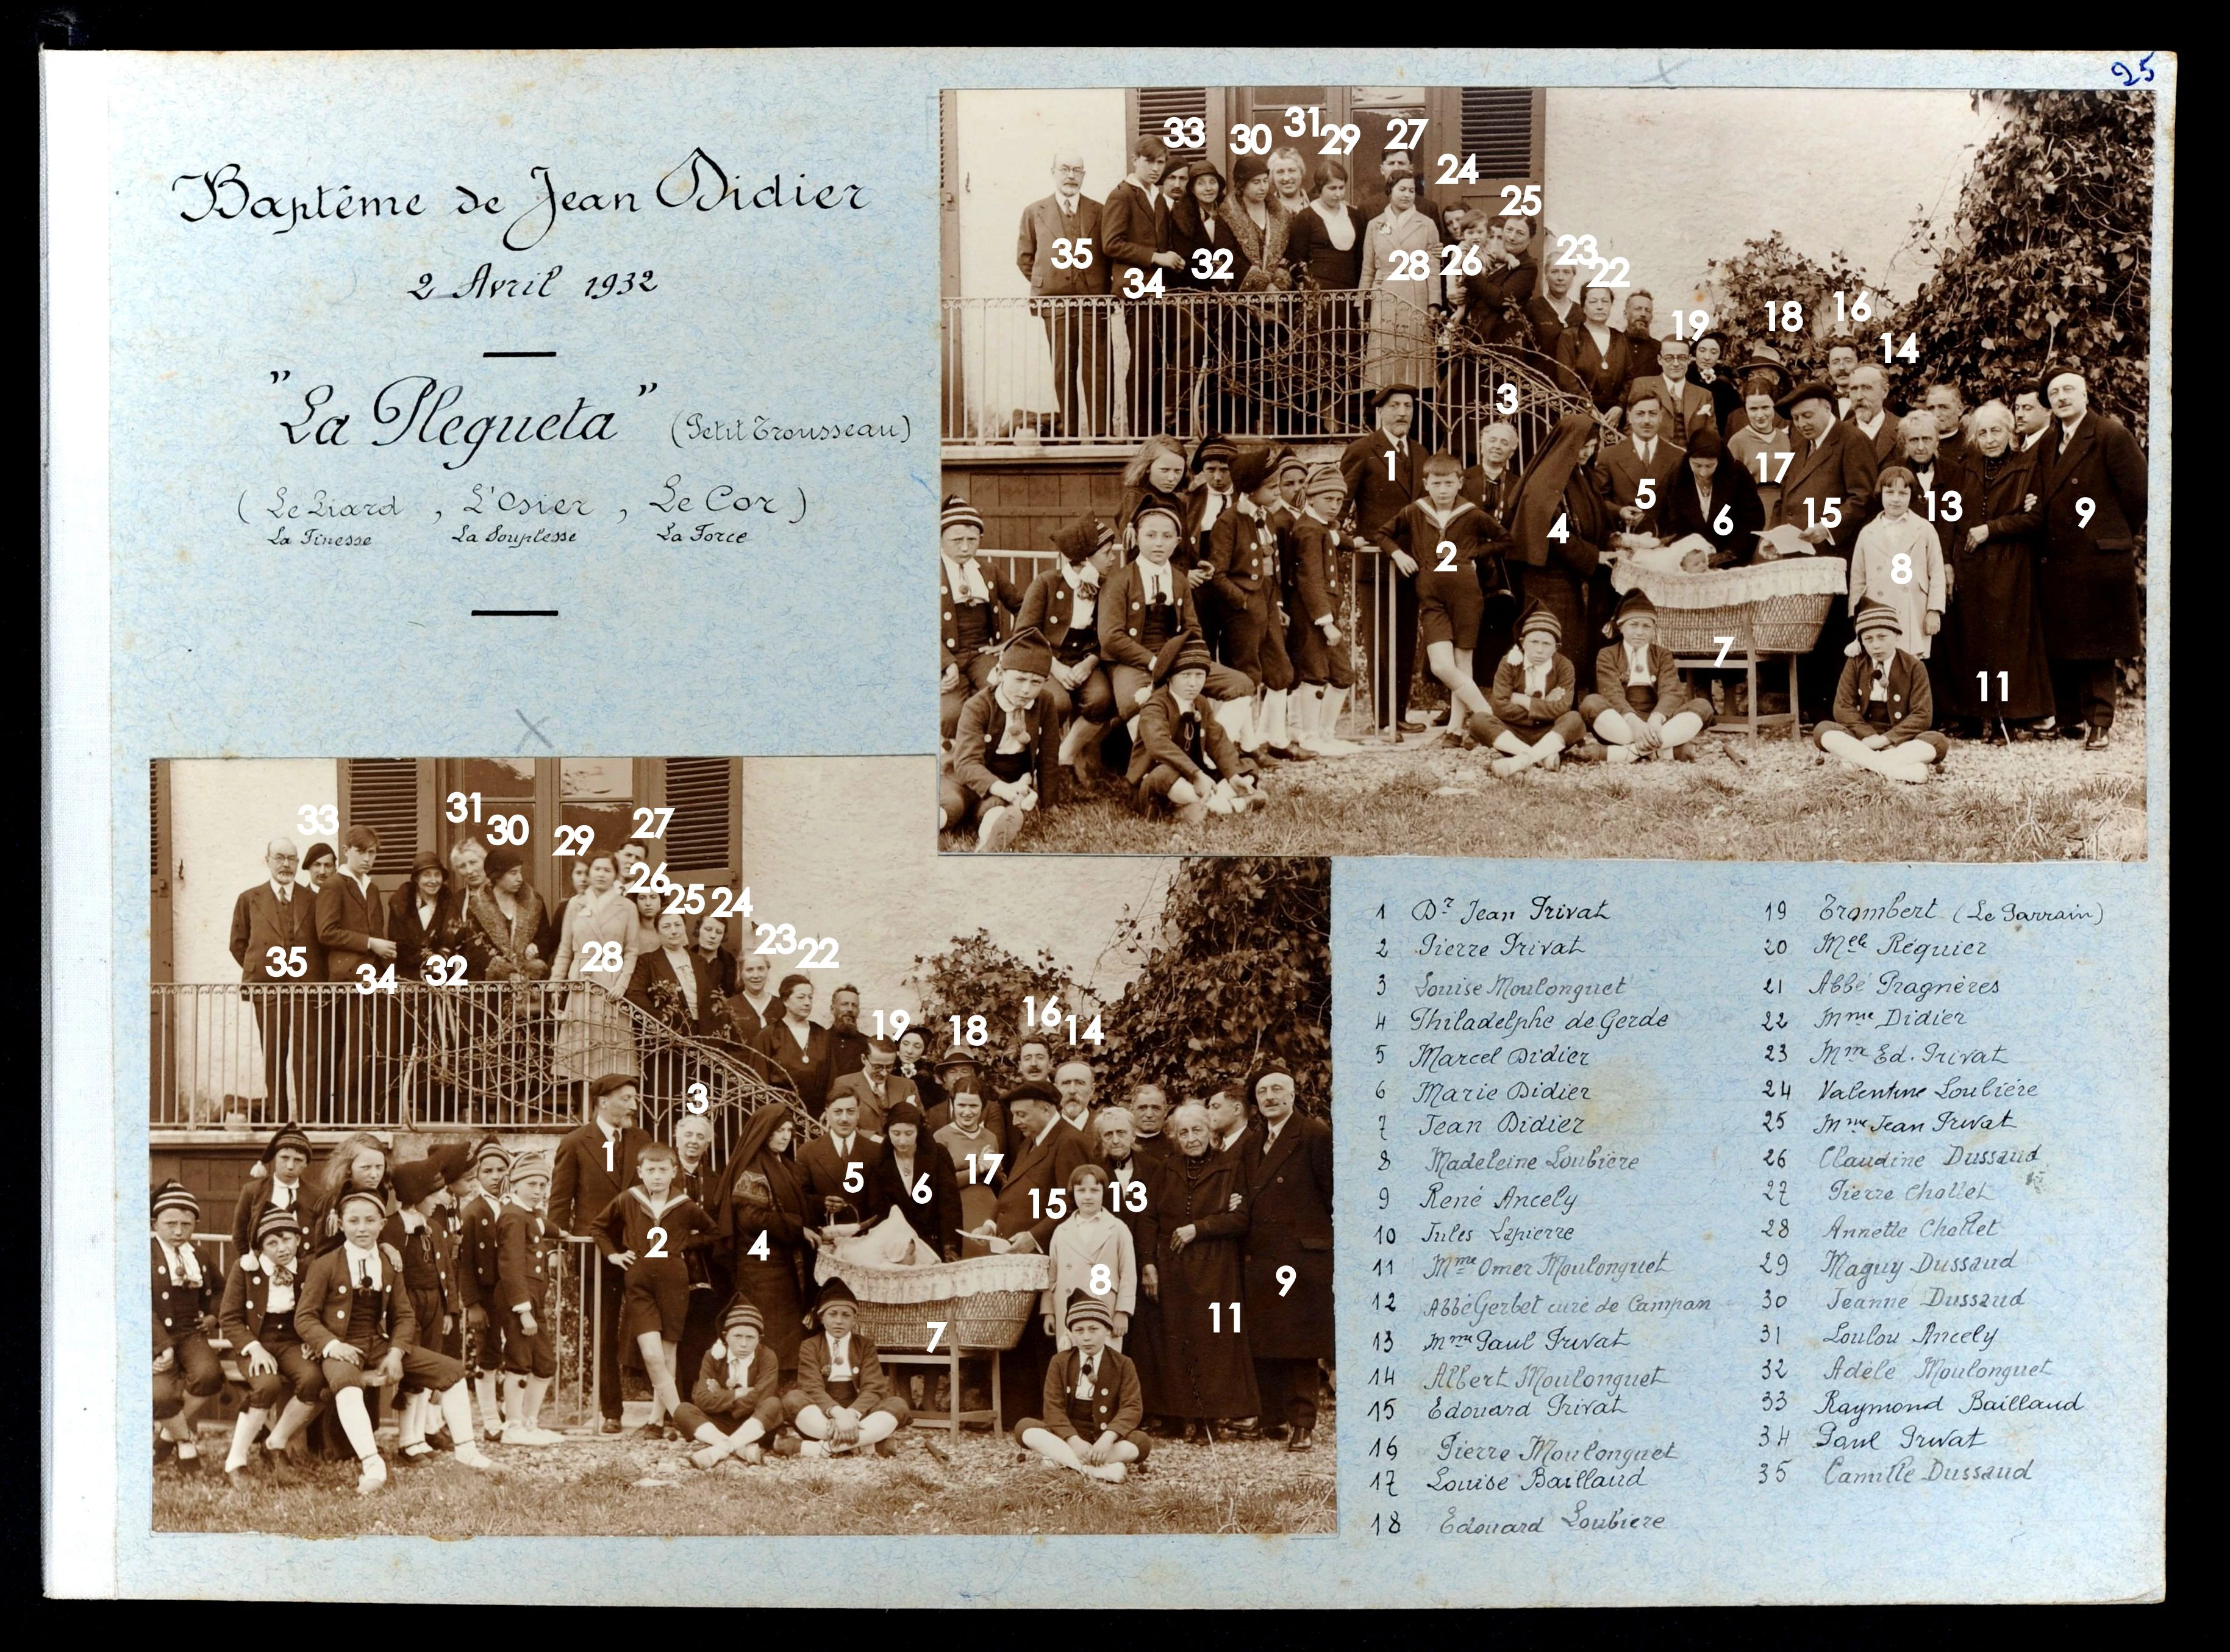 25
Baptême de Jean Didier
2 Avril 1932
"La Plegueta" (Petit Trousseau)
( Le Liard , L'Osier , Le Cor )
La Finesse La Souplesse La Force
33 30 31 29 27
24
25
35 34 32 28 26 23 22
19 18 16
14
3
1 2 4 5 6 17 15 13 9
8
7
11
33 31 30 29 27
26 25 24
35 34 32 28 23 22
19 18 16 14
3
1 2 4 5 6 17 15 13
8 9
7 11
1 Dr Jean Privat
2 Pierre Privat
3 Louise Moulonguet
4 Philadelphe de Gerde
5 Marcel Didier
6 Marie Didier
7 Jean Didier
8 Madeleine Loubière
9 René Ancely
10 Jules Lapierre
11 Mme Omer Moulonguet
12 Abbé Gerbet curé de Campan
13 Mme Paul Privat
14 Albert Moulonguet
15 Edouard Privat
16 Pierre Moulonguet
17 Louise Baillaud
18 Edouard Loubiere
19 Trombert (Le Parrain)
20 Melle Réquier
21 Abbé Pragnères
22 Mme Didier
23 Mm Ed. Privat
24 Valentine Loubière
25 Mme Jean Privat
26 Claudine Dussaud
27 Pierre Chollet
28 Annette Chollet
29 Maguy Dussaud
30 Jeanne Dussaud
31 Loulou Ancely
32 Adèle Moulonguet
33 Raymond Baillaud
34 Paul Privat
35 Camille Dussaud